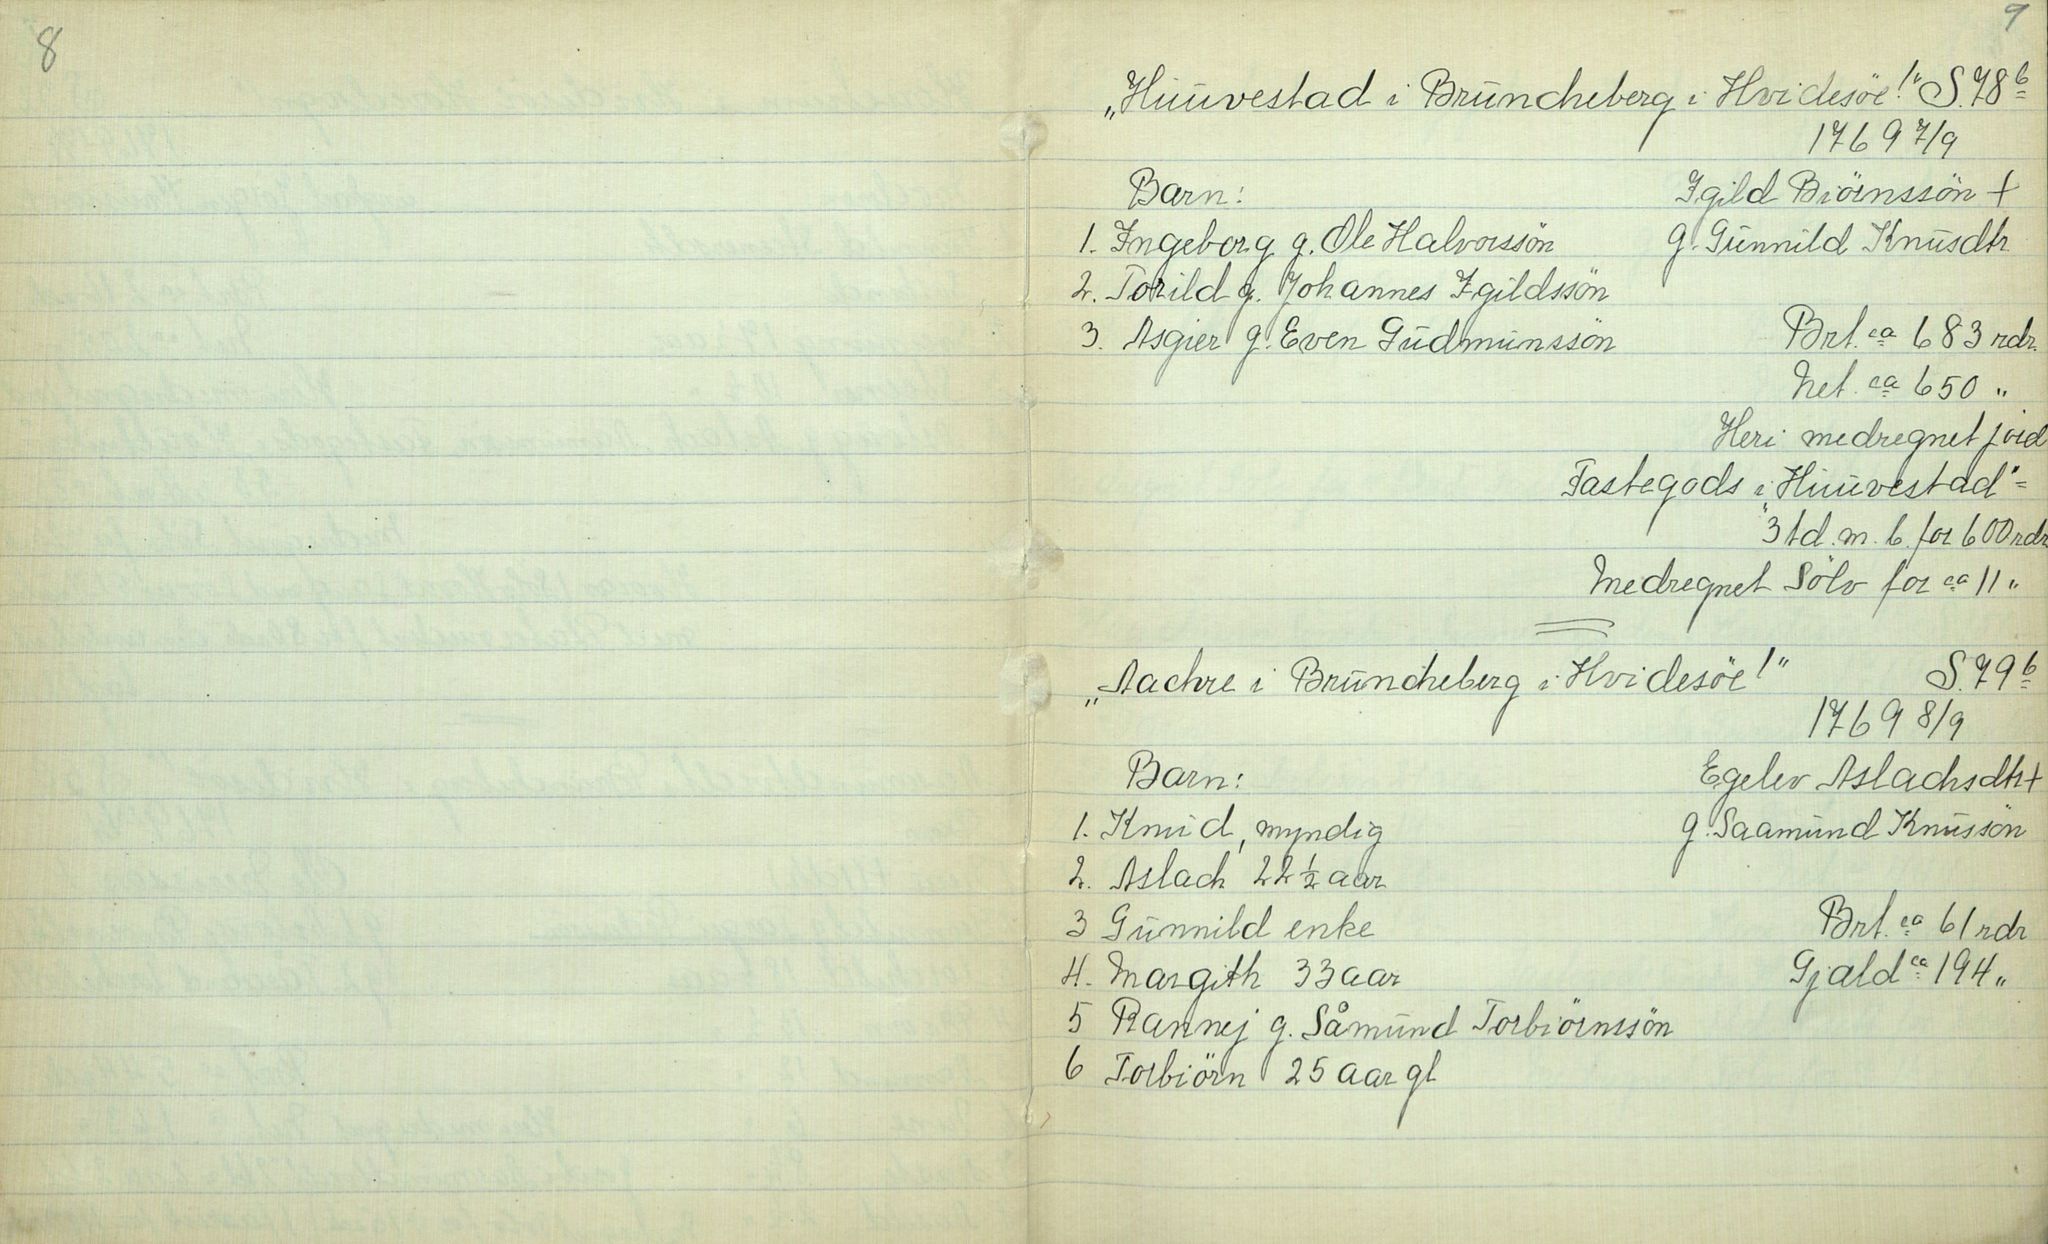 8
9
„Huuvestad i Bruncheberg i Hvidesöe!" S. 78 b
1769 7/9
Barn: Igild Biörnssön +
1. Ingeborg g. Ole Halvorssön g. Gunnild Knusdtr.
2. Torild g. Johannes Igildssön
3. Asgier g. Even Gudmunssön Brt. ca 683 rdr.
Net. ca 650 "
Heri medregnet jord
Fastegods i „Huuvestad" =
3 td. m. b. for 600 rdr
Medregnet Sölv for ca 11 "
„Aachre i Bruncheberg i Hvidesöe!" S. 79 b
1769 8/9
Barn: Egelev Aslachsdtr +
1. Knud, myndig g. Saamund Knussön
2. Aslach 22 ½ aar
3 Gunnild enke Brt. ca 61 rdr
4. Margith 33 aar Gjæld ca 194 "
5 Rannej g. Såmund Torbiörnssön
6 Torbiörn 25 aar gl